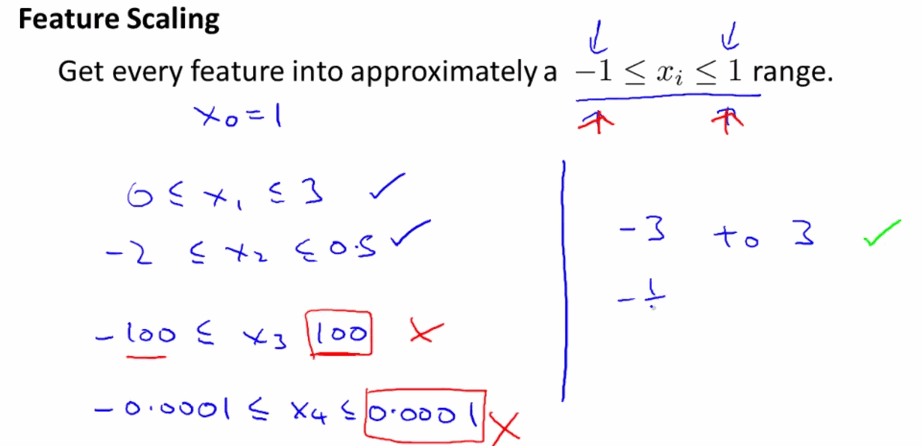 Feature Scaling
Get every feature into approximately a −1 ≤ xᵢ ≤ 1 range.
x₀ = 1
0 ≤ x₁ ≤ 3 ✓
−2 ≤ x₂ ≤ 0.5 ✓
−100 ≤ x₃ 100 ✗
−0.0001 ≤ x₄ ≤ 0.0001 ✗
−3 to 3 ✓